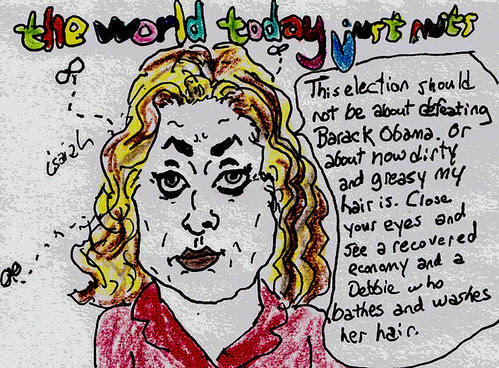 the world today just nuts
isaiah
This election should
not be about defeating
Barack Obama. Or
about how dirty
and greasy my
hair is. Close
your eyes and
see a recovered
economy and a
Debbie who
bathes and washes
her hair.